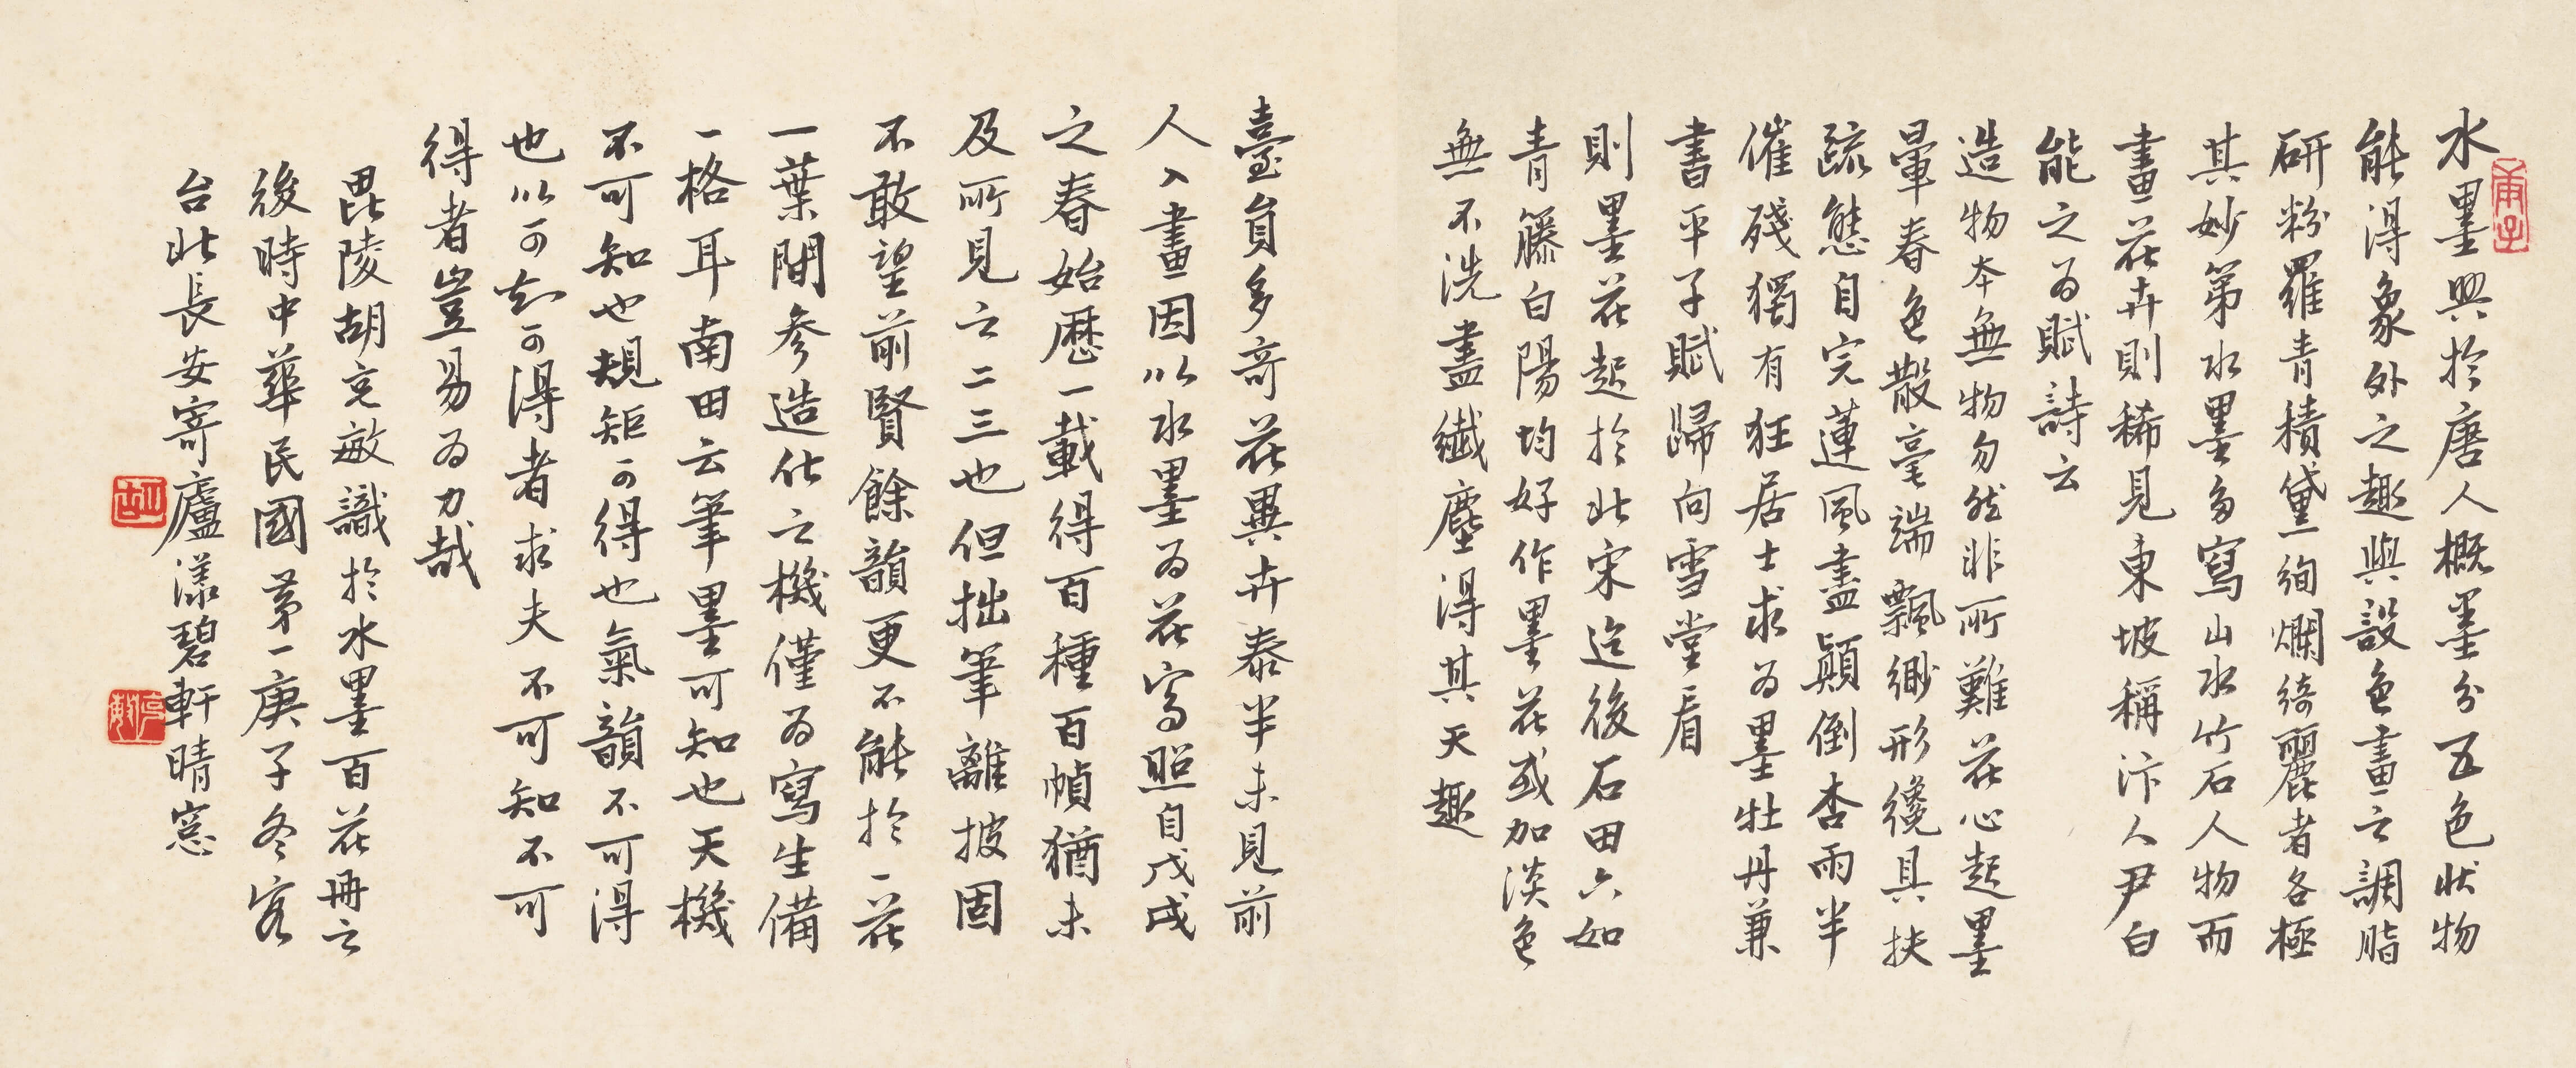 水墨興於唐人概墨分五色狀物
能得象外之趣與設色畫之調脂
研粉羅青積黛絢爛綺麗者各極
其妙第水墨多寫山水竹石人物而
畫花卉則稀見東坡稱汴人尹白
能之為賦詩云
造物本無物勿然非所難花心起墨
暈春色散毫端飄緲形纔具扶
疏態自完蓮風盡顛倒杏雨半
催殘獨有狂居士求為墨牡丹兼
書平子賦歸向雪堂看
則墨花起於北宋迨後石田六如
青籐白陽均好作墨花或加淡色
無不洗盡纖塵得其天趣
臺員多奇花異卉泰半未見前
人入畫因以水墨為花寫照自戊戌
之春始歷一載得百種百幀猶未
及所見之二三也但拙筆離披固
不敢望前賢餘韻更不能於一花
一葉間參造化之機僅為寫生備
一格耳南田云筆墨可知也天機
不可知也規矩可得也氣韻不可得
也以可知可得者求夫不可知不可
得者豈易為力哉
毘陵胡克敏識於水墨百花冊之
後時中華民國第一庚子冬客
台北長安寄廬漾碧軒晴窓
庚子
胡
克敏